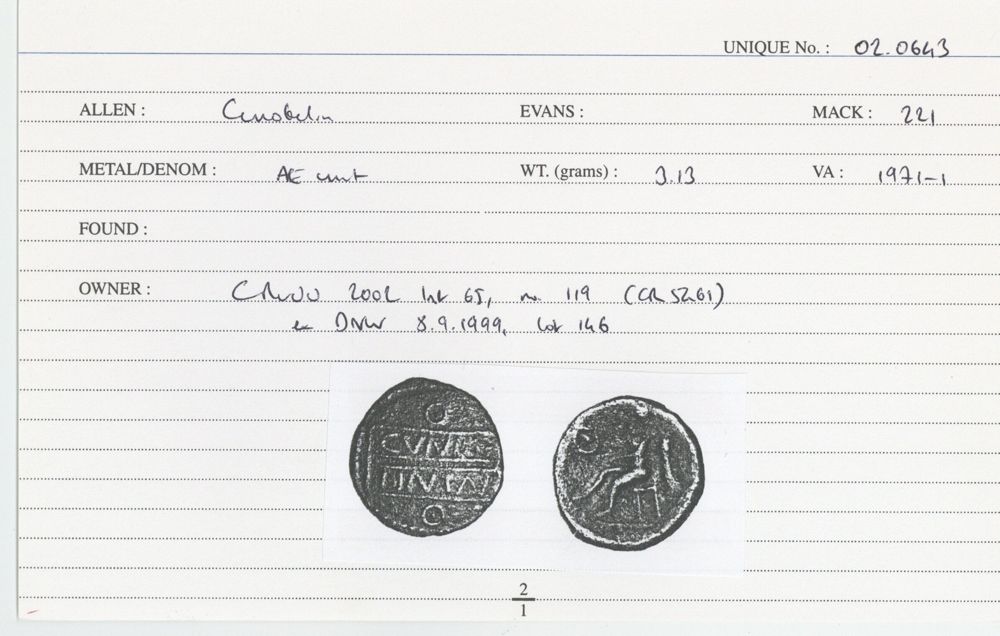 UNIQUE No. : 02.0643
ALLEN : Cunobelin EVANS : MACK : 221
METAL/DENOM : AE unit WT. (grams) : 3.13 VA : 1971-1
FOUND :
OWNER : 2002 list 65, no. 119 (CR 5261)
ex DNW 8.9.1999, lot 146
CVNO
2
1